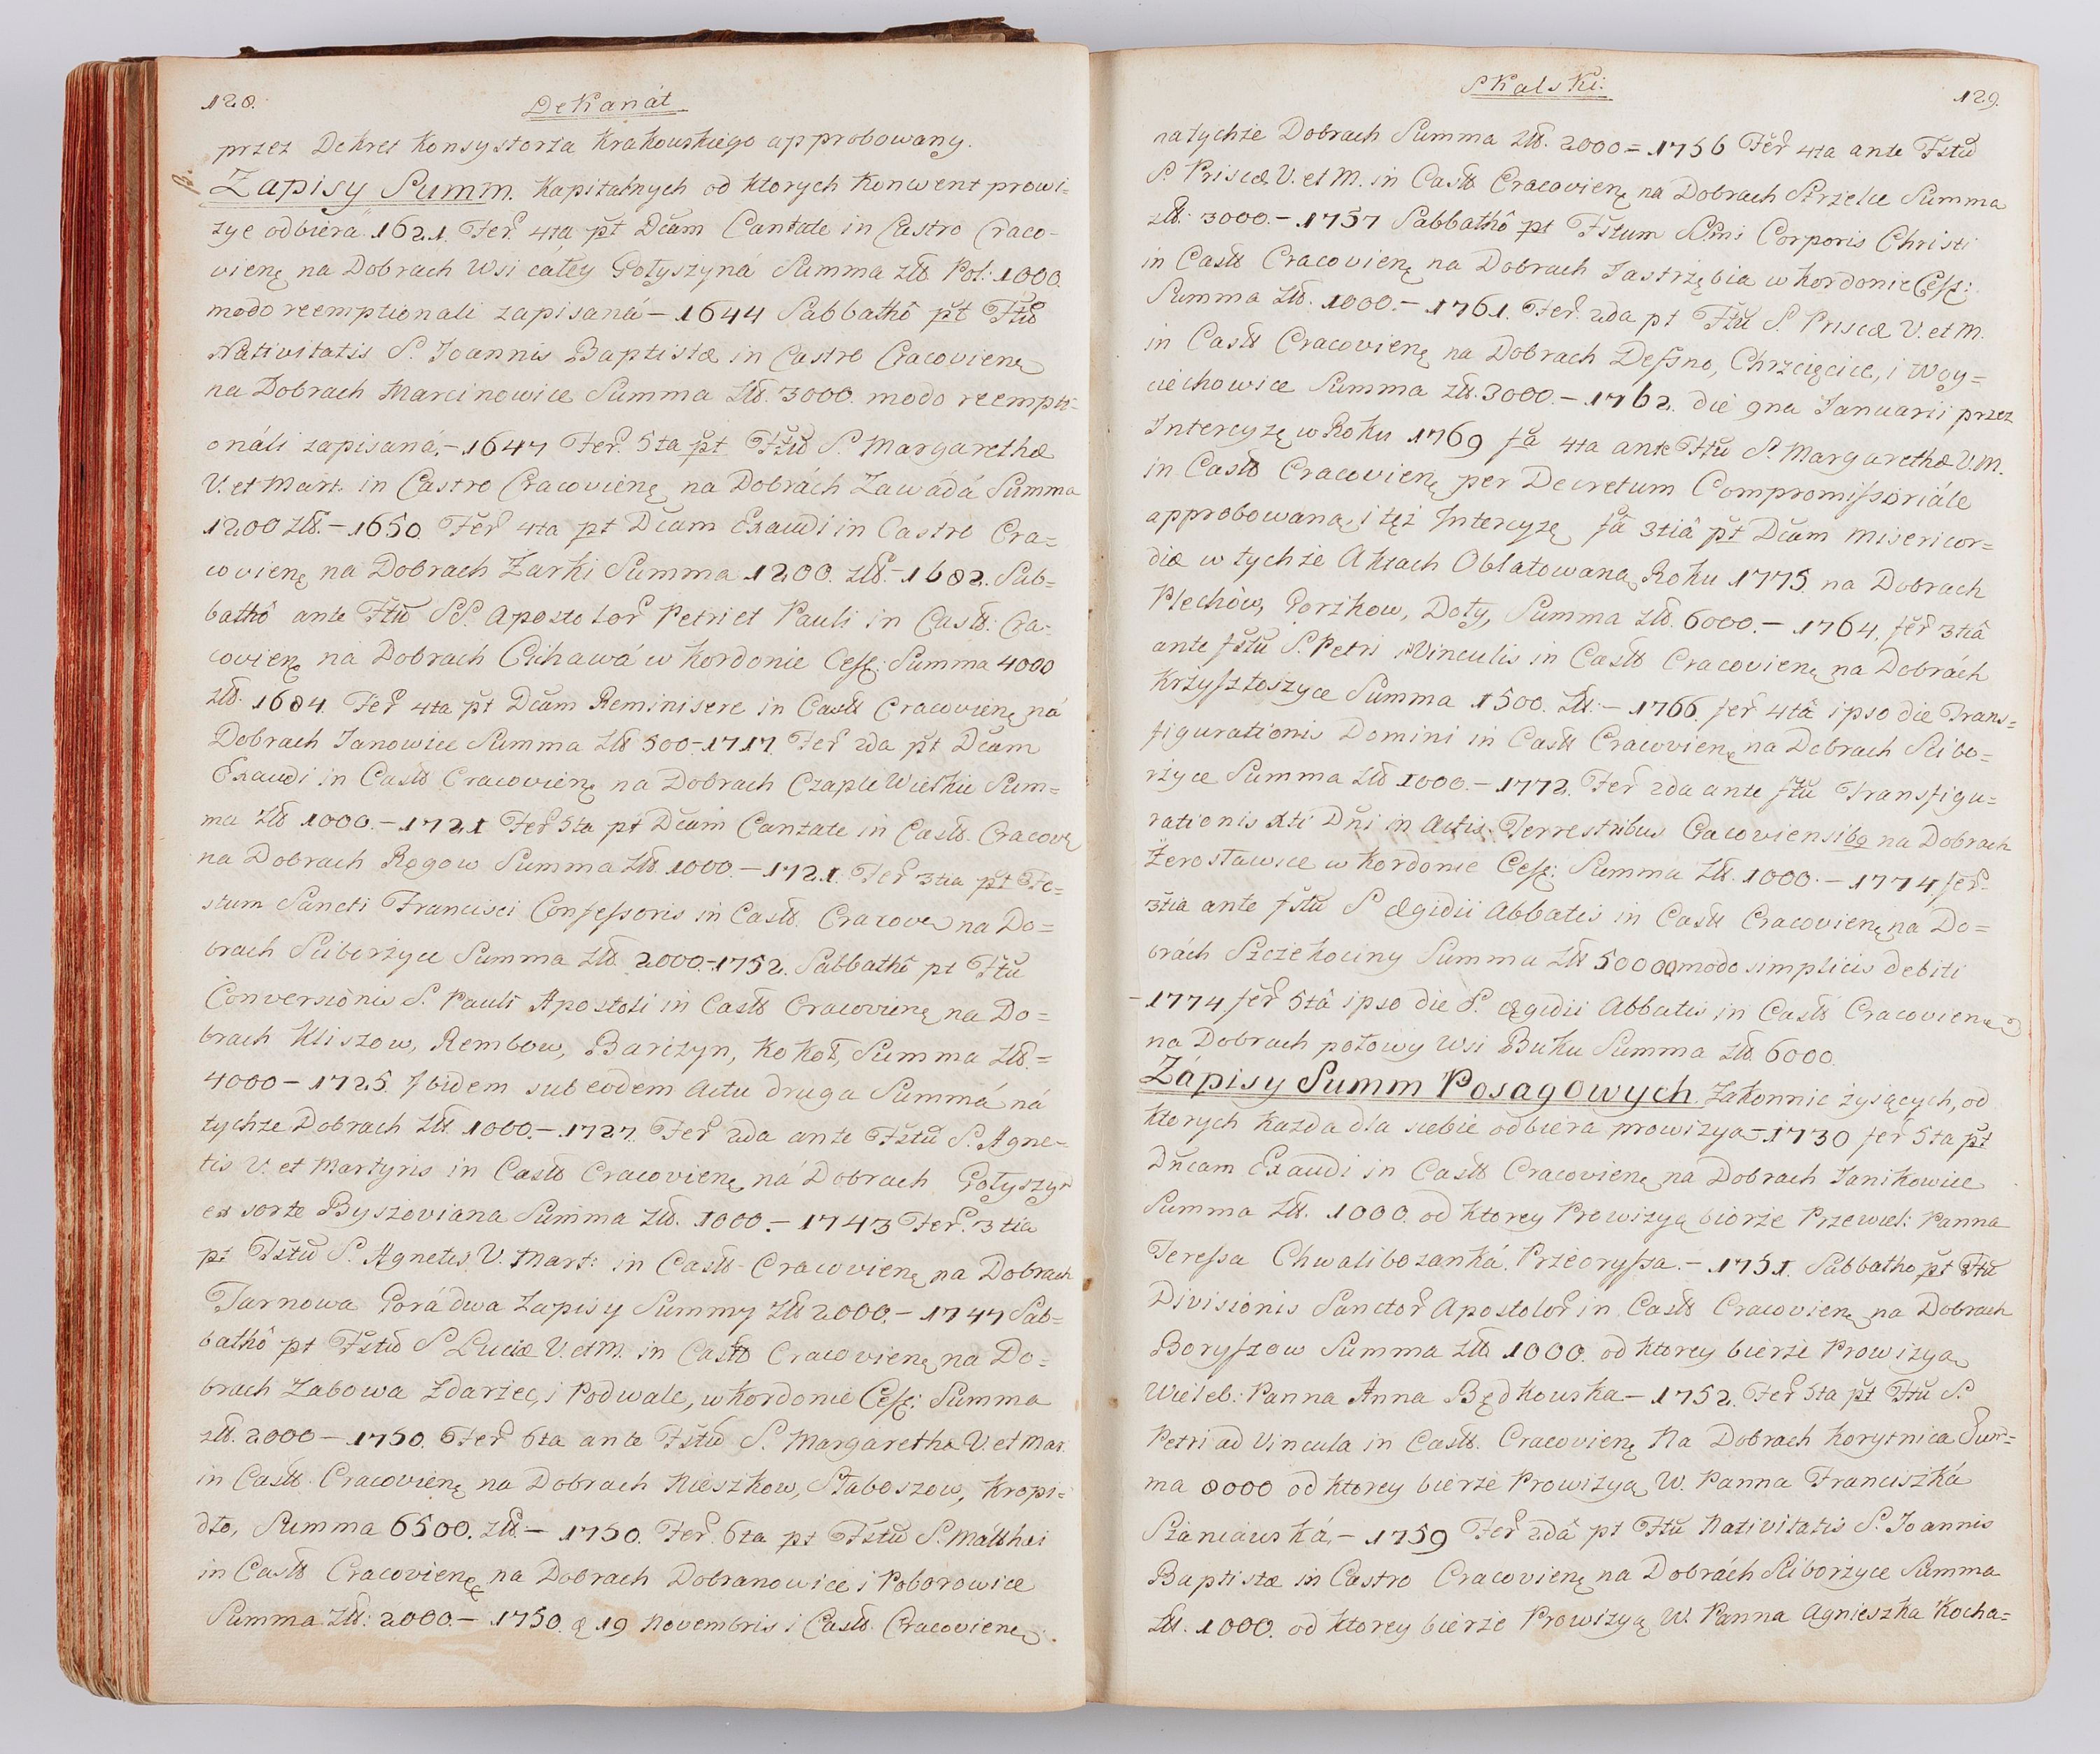 128.
Dekanát
przez Dekret Konsystorza Krakowskiego approbowany.
Zapisy Summ. Kapitalnych od ktorych Konwent prowi=
zye odbiera. 1621. Fer. 4ta pt Dcam Cantate in Castro Craco-
vienę na Dobrach Wsi całey Gołyszyná Summa złł. Pol: 1000.
modo reemptionali zapisaná – 1644 Sabbathô pt Fstũ
Nativitatis S. Joannis Baptistæ in Castro Cracovienę
na Dobrach Marcinowice Summa Złł. 3000. modo reempti=
onáli zapisaná, – 1647 Fer. 5ta pt Fstũ S. Margarethæ
V. et Mart. in Castro Cracovienę na Dobrách Zawádá Summa
1200 złł. – 1650. Fer 4ta pt Dcam Exaudi in Castro Cra=
covienę na Dobrach Żarki Summa 1200. złł. – 1682. Sab-
bathô ante Fstũ SS. Apostolor Petri et Pauli in Castr: Cra=
covienę na Dobrach Cichawá w Kordonie Cesſ: Summa 4000
złł. 1684. Fer 4ta pt Dcam Reminisere in Castr Cracovienę ná
Dobrach Janowice Summa Złł 500 – 1717. Fer 2da pt Dcam
Exaudi in Castr Cracovienę na Dobrach Czaple Wielkie Sum=
ma Złł 1000. – 1721 Fer 5ta pt Dcam Cantate in Castr. Cracovę
na Dobrach Rogow Summa Złł. 1000. – 1721. Fer 3tia pt Fe=
stum Sancti Francisci Confeſsoris in Castr. Cracovę na Do=
brach Sciborżyce Summa Złł. 2000. – 1752. Sabbathô pt Fstũ
Conversionis S. Pauli Apostoli in Castr Cracovienę na Do=
brach Kliszow, Rembow, Barczyn, Kokot, Summa Złł. =
4000 – 1725. Ibidem sub eodem Actu druga Summá ná
tychże Dobrach Złł. 1000. – 1727. Fer 2da ante Fstũ S. Agne-
tis V. et Martyris in Castr Cracovienę ná Dobrach Gołyszyn
ex sorte Byszoviana Summa Złł. 1000. – 1743 Fer. 3tia
pt Fstũ S. Agnetis V. Mart: in Castr Cracovienę na Dobrach
Tarnowa Gorá dwa Zapisy Summy Złł 2000. – 1747 Sab=
bathô pt Fstũ S Luciæ V. et M. in Castr Cracovienę na Do=
brach Zabowa Zdarzec, i Podwale, w Kordonie Cesſ: Summa
złł. 2000 – 1750. Fer 6ta ante Fstũ S. Margarethæ V. et Mar.
in Castr. Cracovienę na Dobrach Nieszkow, Słaboszow, Kropi=
dło, Summa 6500. złł. – 1750. Fer. 6ta pt Fstũ S. Matthæi
in Castr Cracovienę na Dobrach Dobranowice i Poborowice
Summa Złł: 2000. – 1750. 19 Novembris i Castr. Cracovienę
Skalski:
129.
na tychże Dobrach Summa Złł. 2000 = 1756 Fer 4ta ante Fstũ
S. Priscæ V. et M. in Castr Cracovienę na Dobrach Strzelce Summa
złł. 3000. – 1757 Sabbathô pt Fstum SSmi Corporis Christi
in Castr Cracovienę na Dobrach Jastrzębia w Kordonie Cesſ:
Summa Złł. 1000. – 1761. Fer. 2da pt Fstũ S. Priscæ V. et M.
in Castr Cracovienę na Dobrach Deſzno, Chrzcięcice, i Woy=
ciechowice Summa złł. 3000. – 1762. die 9na Januarii przez
Intercyzę w Roku 1769 fa 4ta ante Fstũ S. Margarethæ V. M.
in Castr Cracovienę per Decretum Compromiſsoriále
approbowaną, i tęż Intercyzę fâ 3tiâ pt Dcam Misericor=
diæ w tychże Aktach Oblatowaną Roku 1775 na Dobrach
Plechów, Gorzkow, Doły, Summa Złł. 6000. – 1764. fer 3tiâ
ante fstũ S. Petri in Vinculis in Castr Cracovienę na Dobrách
Krzyſztoszyce Summa 1500. Złł. – 1766. fer 4tâ ipso die Trans=
figurationis Domini in Castr Cracovienę na Dobrach Scibo=
rżyce Summa Złł 1000. – 1772. Fer 2da ante fstũ Transfigu=
rationis Xti Dni in Actis Terrestribus Cracoviensibg na Dobrach
Żerosławice w Kordonie Cesſ: Summa Złł. 1000. – 1774 fer.
3tia ante fstũ S Ægidii Abbatis in Castr Cracovienę na Do=
brách Szczekociny Summa Złł 50000 modo simplicis debiti
– 1774 fer 5tâ ipso die S. Ægidii Abbatis in Castr Cracovienę
na Dobrach połowy Wsi Buku Summa Złł. 6000.
Zápisy Summ Posagowych Zakonnic żyiących, od
ktorych każda dla siebie odbiera prowizyą – 1730 fer 5ta pt
Dncam Exaudi in Castr Cracovienę na Dobrach Janikowice
Summa Złł. 1000. od ktorey Prowizyą biorże Przewiel: Panna
Tereſsa Chwalibozanká Przeoryſza. – 1751. Sabbatho pt Fstũ
Divisionis Sanctor Apostolor in Castr Cracovienę na Dobrach
Boryſzow Summa złł. 1000. od ktorey bierże Prowizyą
Wieleb: Panna Anna Będkowska – 1752. Fer 5ta pt Fstũ S.
Petri ad Vincula in Castr. Cracovienę Na Dobrach Korytnica Sum=
ma 8000 od ktorey bierże Prowizyą W. Panna Franciszká
Stániáwská, – 1759 Fer 2dâ pt Fstũ Nativitatis S. Joannis
Baptistæ in Castro Cracovienę na Dobrách Sciborżyce Summa
złł. 1000. od ktorey bierże Prowizyą W. Panna Agnieszka Kocha=